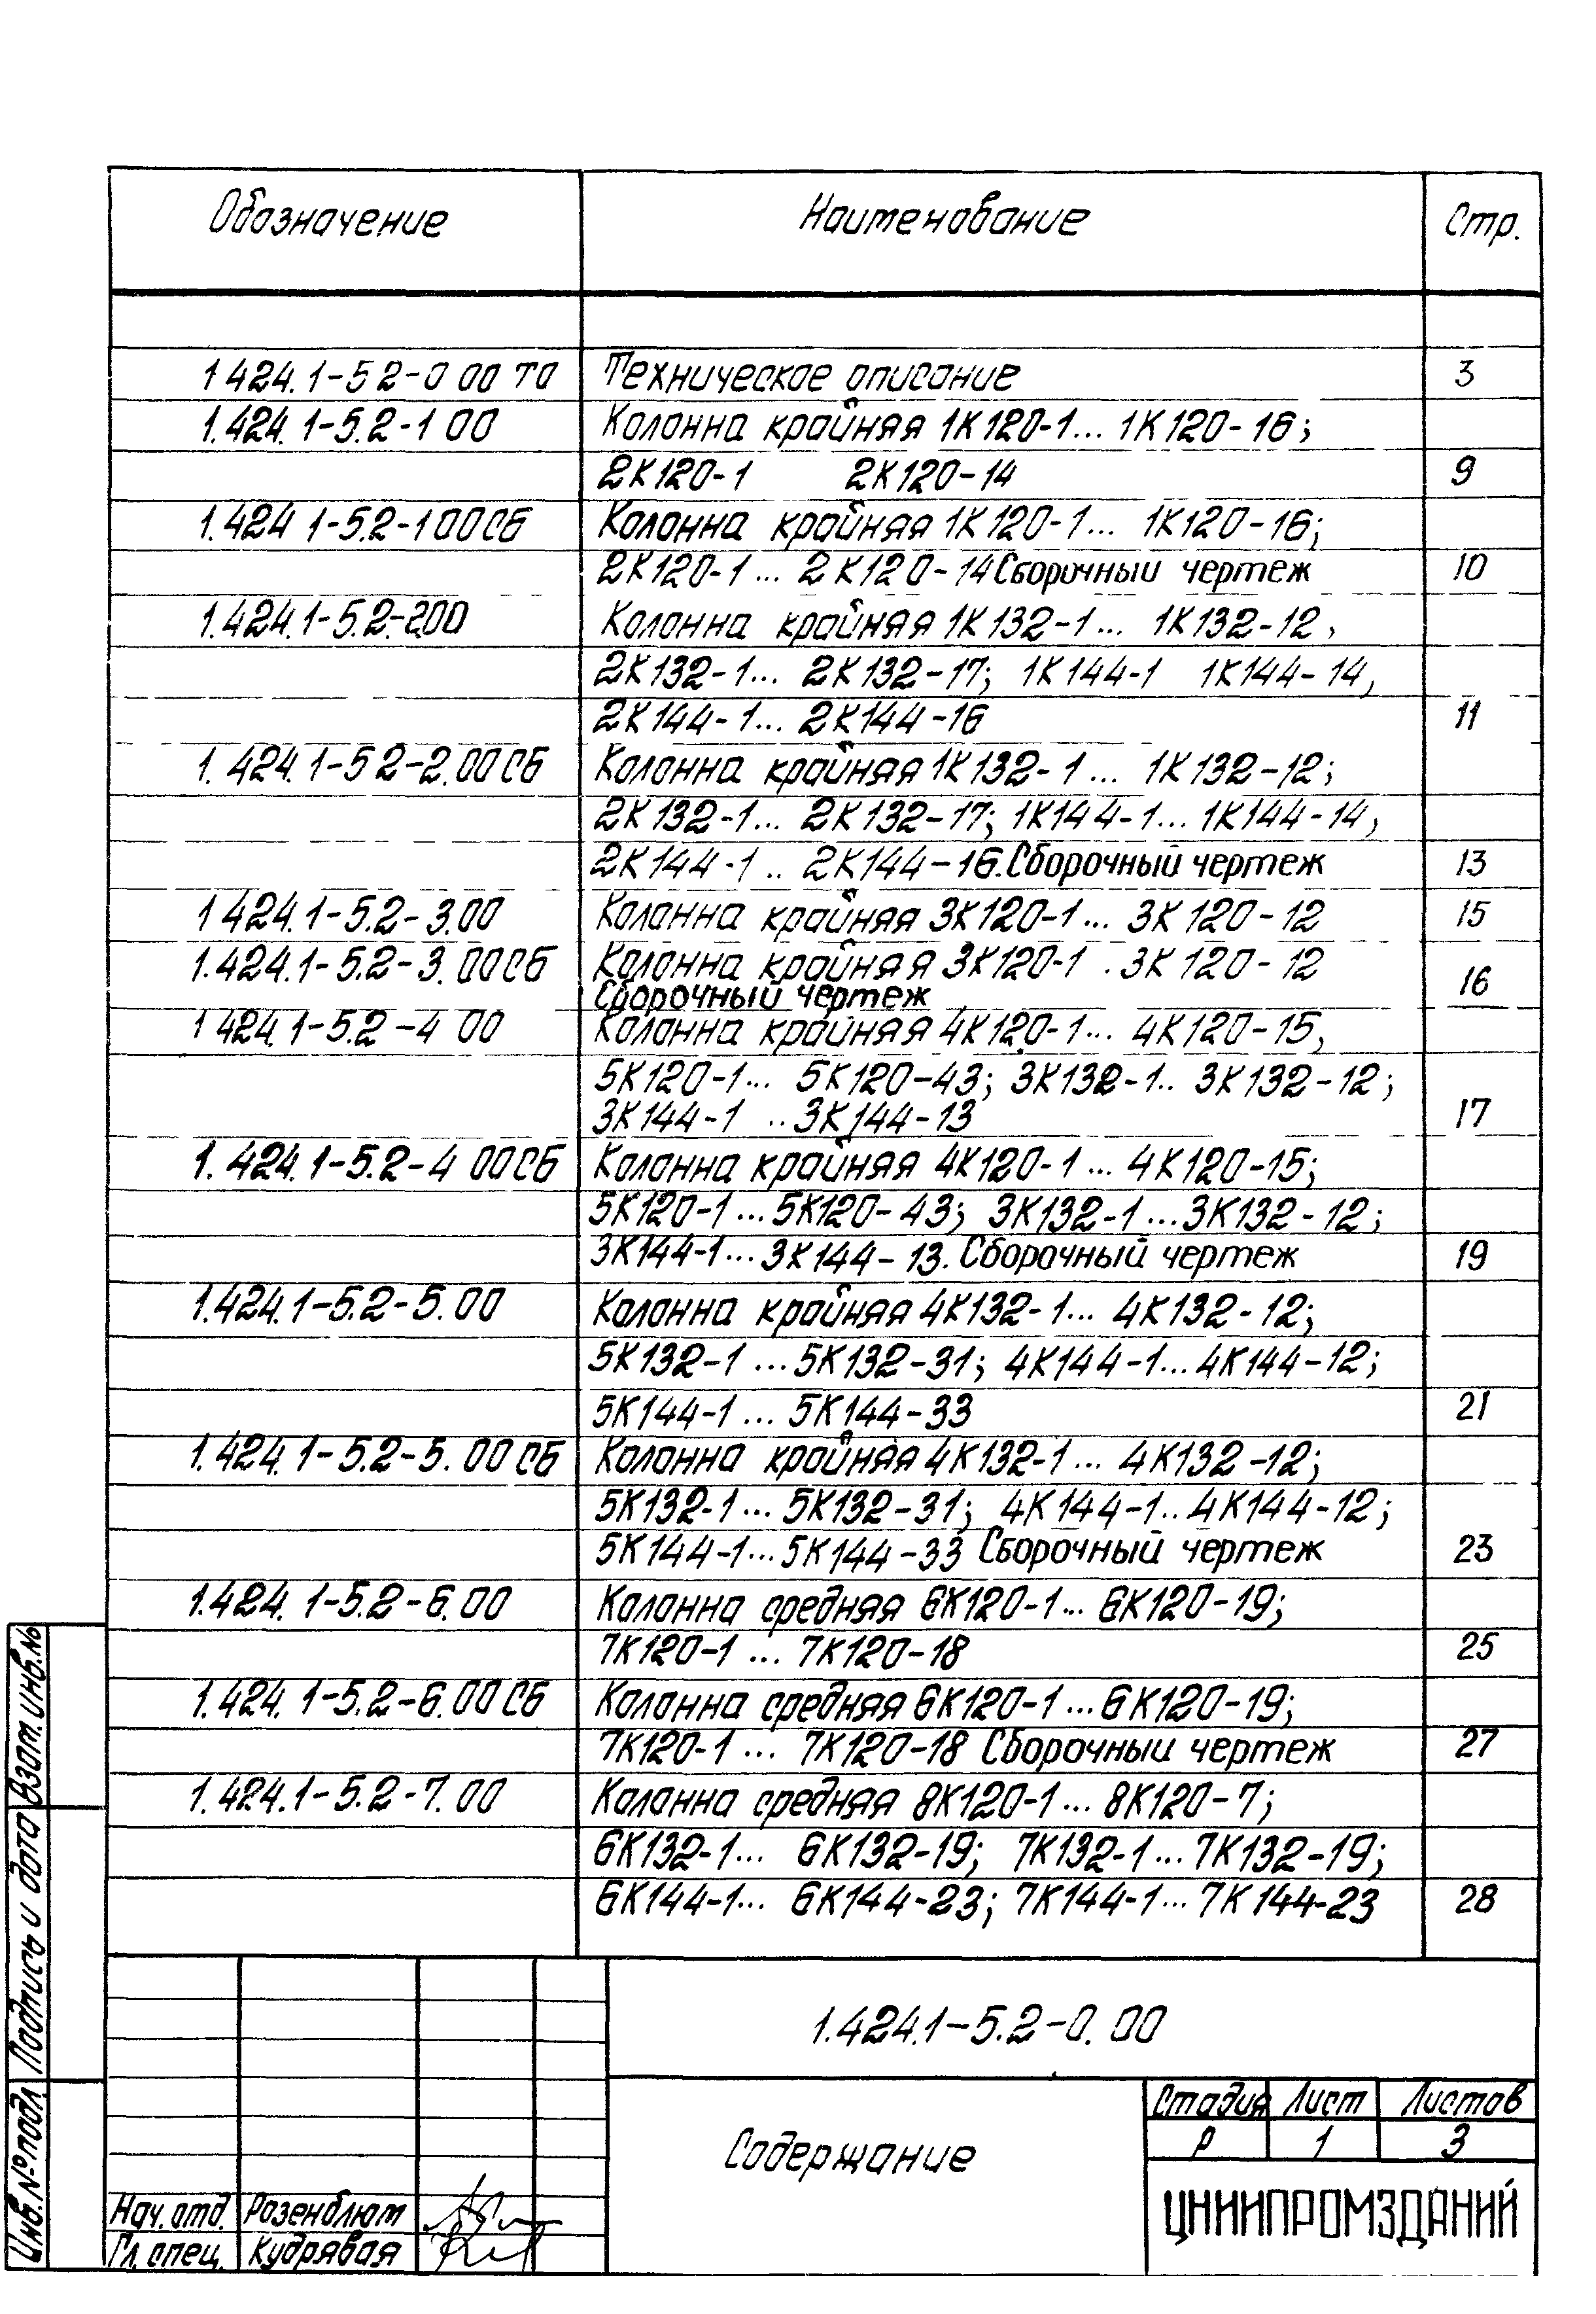 Обозначение Наименование Стр.
1 424.1-5 2-0 00 ТО Техническое описание 3
1.424.1-5.2-1 00 Колонна крайняя 1К120-1... 1К120-16;
2К120-1 2К120-14 9
1.424 1-5.2-1 00СБ Колонна крайняя 1К120-1... 1К120-16;
2К120-1... 2К120-14 Сборочный чертеж 10
1.424.1-5.2-2.00 Колонна крайняя 1К132-1... 1К132-12,
2К132-1... 2К132-17; 1К144-1 1К144-14,
2К144-1... 2К144-16 11
1.424.1-5 2-2.00СБ Колонна крайняя 1К132-1... 1К132-12;
2К132-1... 2К132-17; 1К144-1... 1К144-14,
2К144-1.. 2К144-16. Сборочный чертеж 13
1 424.1-5.2-3.00 Колонна крайняя 3К120-1... 3К120-12 15
1.424.1-5.2-3.00СБ Колонна крайняя 3К120-1 . 3К120-12
Сборочный чертеж 16
1 424.1-5.2-4 00 Колонна крайняя 4К120-1... 4К120-15,
5К120-1... 5К120-43; 3К132-1.. 3К132-12;
3К144-1 ..3К144-13 17
1.424.1-5.2-4 00СБ Колонна крайняя 4К120-1... 4К120-15;
5К120-1...5К120-43; 3К132-1...3К132-12;
3К144-1...3К144-13. Сборочный чертеж 19
1.424.1-5.2-5.00 Колонна крайняя 4К132-1... 4К132-12;
5К132-1...5К132-31; 4К144-1...4К144-12;
5К144-1... 5К144-33 21
1.424.1-5.2-5.00СБ Колонна крайняя 4К132-1... 4К132-12;
5К132-1... 5К132-31; 4К144-1..4К144-12;
5К144-1...5К144-33 Сборочный чертеж 23
1.424.1-5.2-6.00 Колонна средняя 6К120-1... 6К120-19;
7К120-1... 7К120-18 25
1.424.1-5.2-6.00СБ Колонна средняя 6К120-1...6К120-19;
7К120-1... 7К120-18 Сборочный чертеж 27
1.424.1-5.2-7.00 Колонна средняя 8К120-1... 8К120-7;
6К132-1... 6К132-19; 7К132-1...7К132-19;
6К144-1... 6К144-23; 7К144-1...7К144-23 28
Взам.инв.№
Подпись и дата
Инв.№подл.
1.424.1-5.2-0.00
Содержание
Стадия Лист Листов
Р 1 3
ЦНИИПРОМЗДАНИЙ
Нач.отд. Розенблюм
Гл.спец. Кудрявая